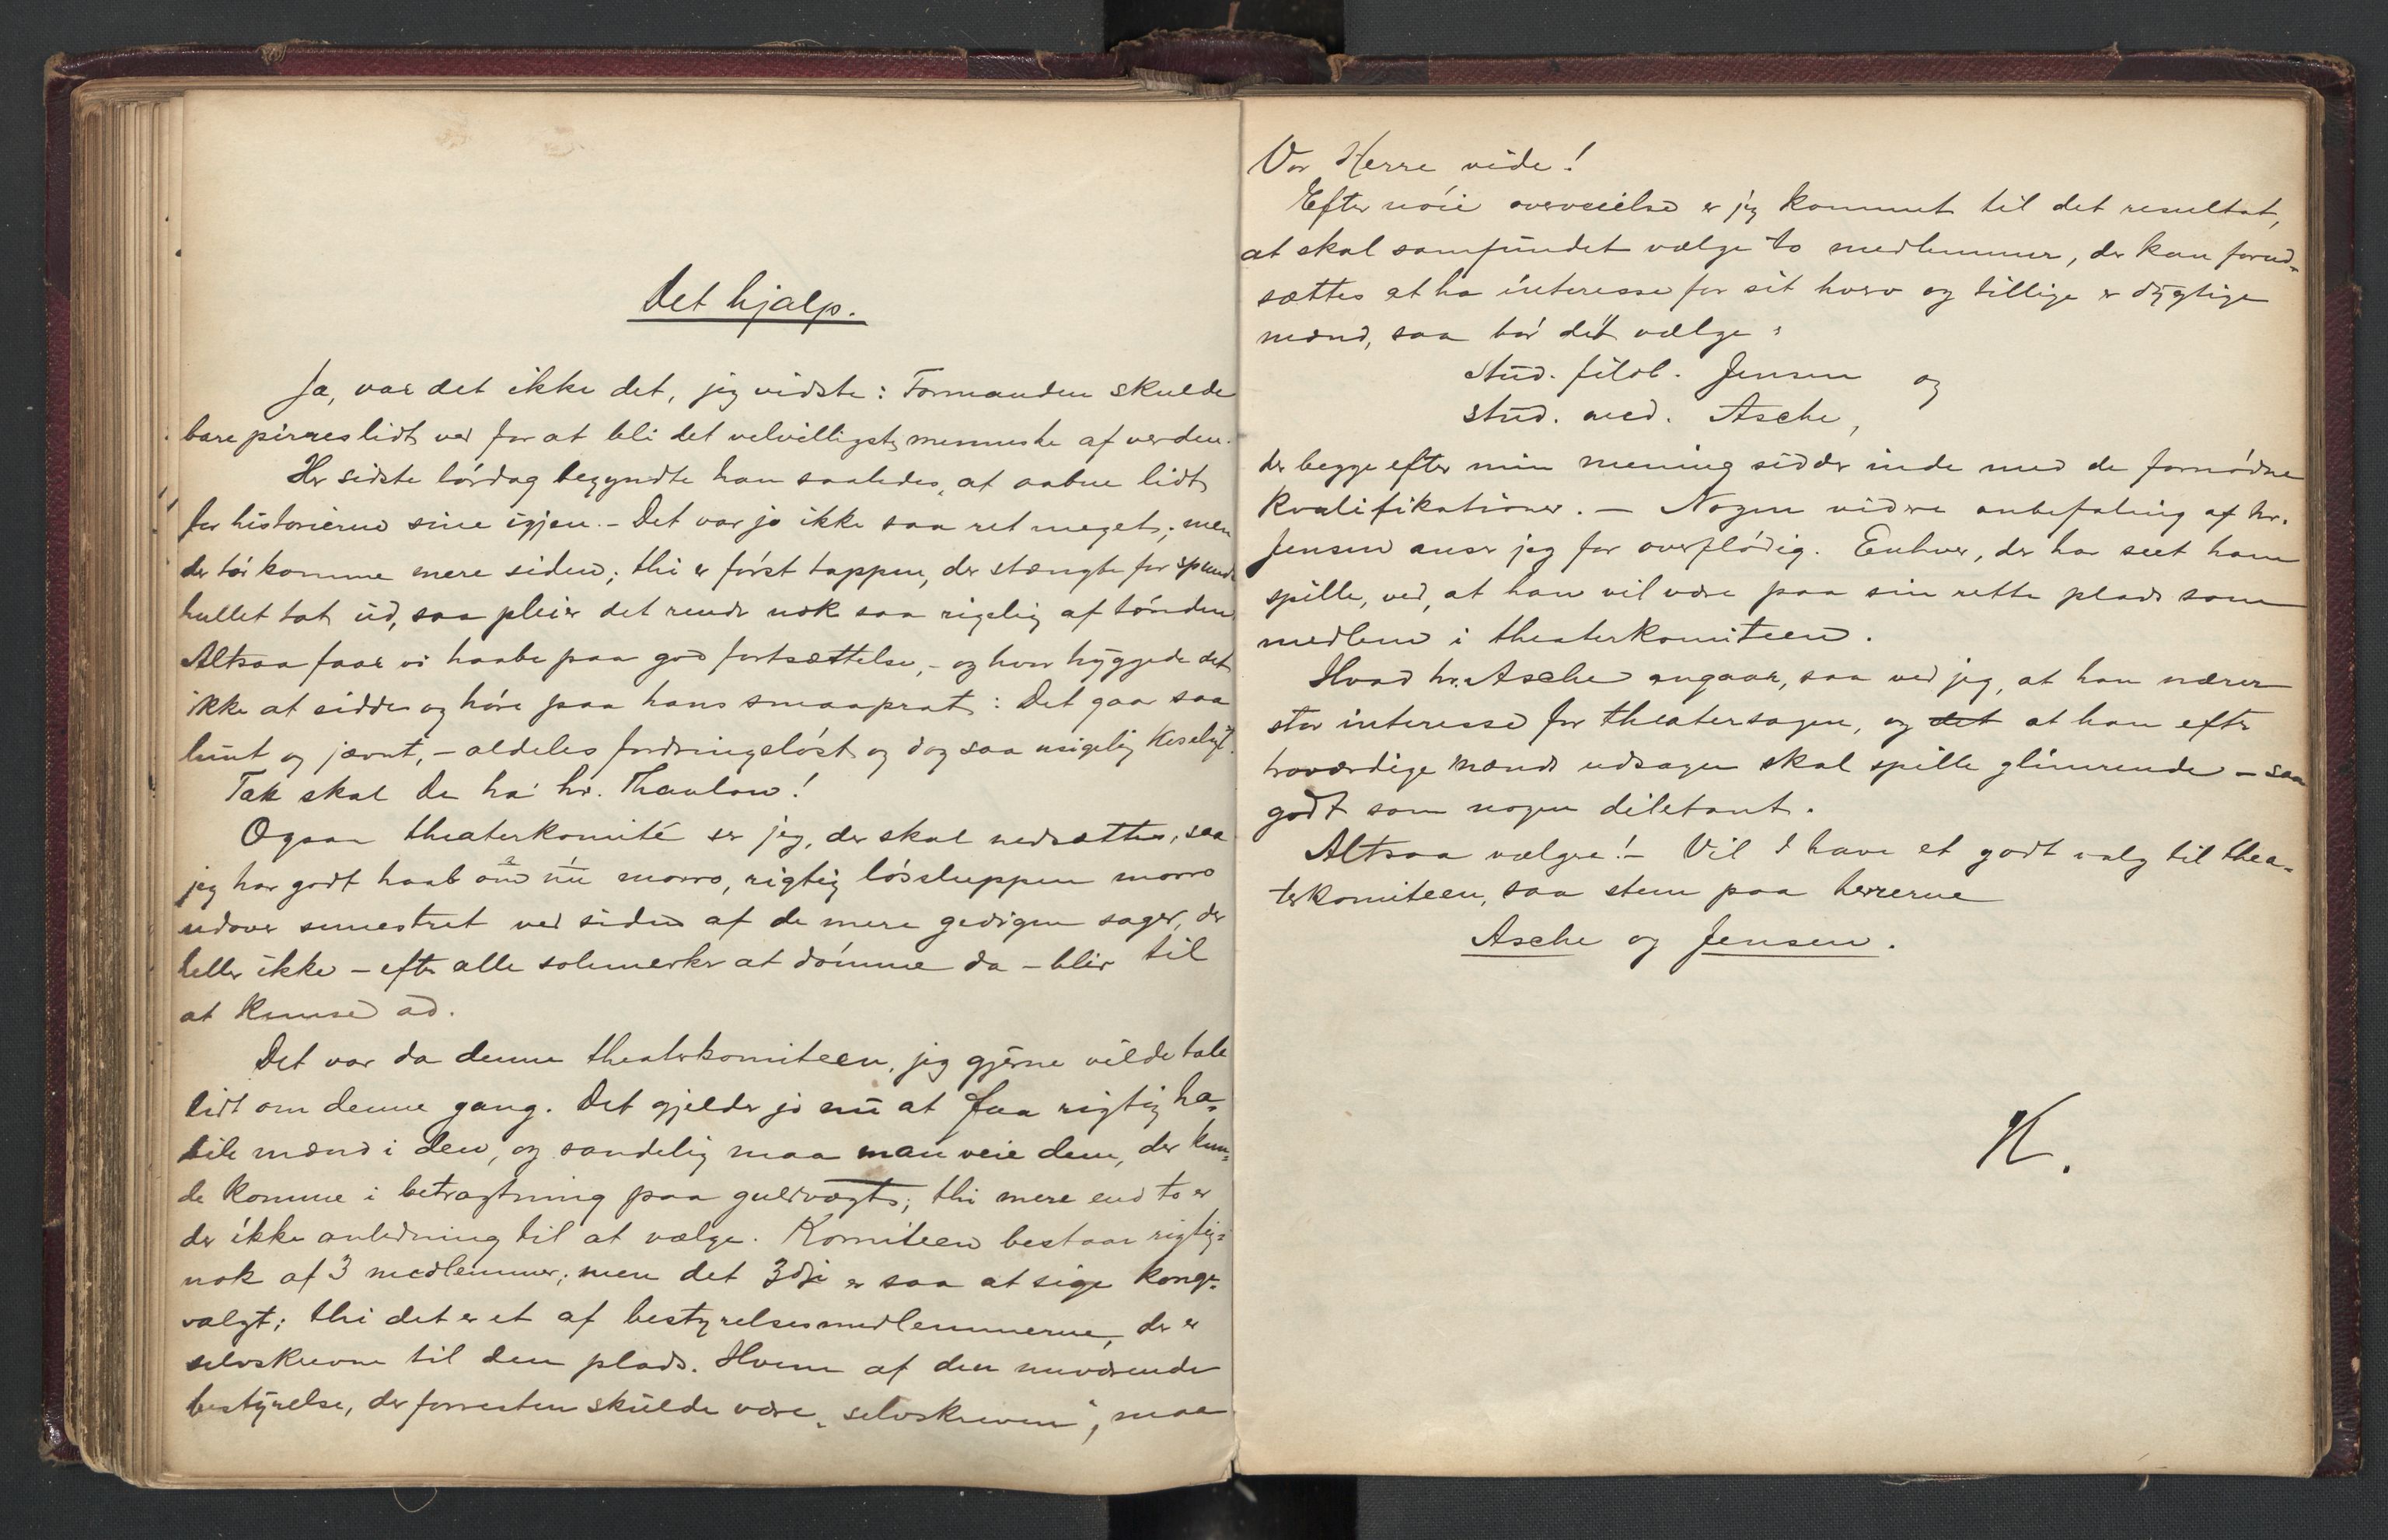 Det hjalp.
Ja, var det ikke det, jeg vidste: Formanden skulde
bare pirres lidt ved for at bli det velvilligste menneske af verden.
Her sidste lørdag begyndte han saaledes at aabne lidt
for historierne sine igjen. – Det var jo ikke saa ret meget; men
der tør komme mere siden; thi er først tappen, der stængte for spuns-
hullet tat ud, saa pleier det rende nok saa rigelig af tønden.
Altsaa faar vi haabe paa god fortsættelse, – og hvor hyggede det
ikke at sidde og høre paa hans smaaprat: Det gaar saa
lunt og jævnt, – aldeles fordringsløst og dog saa usigelig koseligt.
Tak skal De ha' hr. Thaulow!
Ogsaa theaterkomité ser jeg, der skal nedsættes, saa
jeg har godt haab om nu morro, rigtig løssluppen morro
udover semestret ved siden af de mere gedigne sager, der
heller ikke – efter alle solemerker at dømme da – blir til
at kimse ad.
Det var da denne theaterkomiteen, jeg gjerne vilde tale
lidt om denne gang. Det gjelder jo nu at faa rigtig ha-
bile mænd i den, og sandelig maa man veie dem, der kun-
de komme i betragtning paa guldvægt; thi mere end to er
der ikke anledning til at vælge. Komiteen bestaar rigtig-
nok af 3 medlemmer; men det 3dje er saa at sige konge-
valgt; thi det er et af bestyrelsesmedlemmerne, der er
selvskrevne til den plads. Hvem af den nuværende
bestyrelse, der forresten skulde være „selvskreven“, maa
Vor Herre vide!
Efter nøie overveielse er jeg kommet til det resultat,
at skal samfundet vælge to medlemmer, der kan forud-
sættes at ha interesse for sit hverv og tillige er dygtige
mænd, saa bør det vælge:
stud. filol. Jensen og
stud. med. Asche,
der begge efter min mening sidder inde med de fornødne
kvalifikationer. – Nogen videre anbefaling af hr.
Jensen anser jeg for overflødig. Enhver, der har seet ham
spille, ved, at han vil være paa sin rette plads som
medlem i theaterkomiteen.
Hvad hr. Asche angaar, saa ved jeg, at han nærer
stor interesse for theatersagen, og det at han efter
troværdige mænds udsagn skal spille glimrende – saa
godt som nogen diletant.
Altsaa vælgere! – Vil I have et godt valg til thea-
terkomiteen, saa stem paa herrerne
Asche og Jensen.
K.